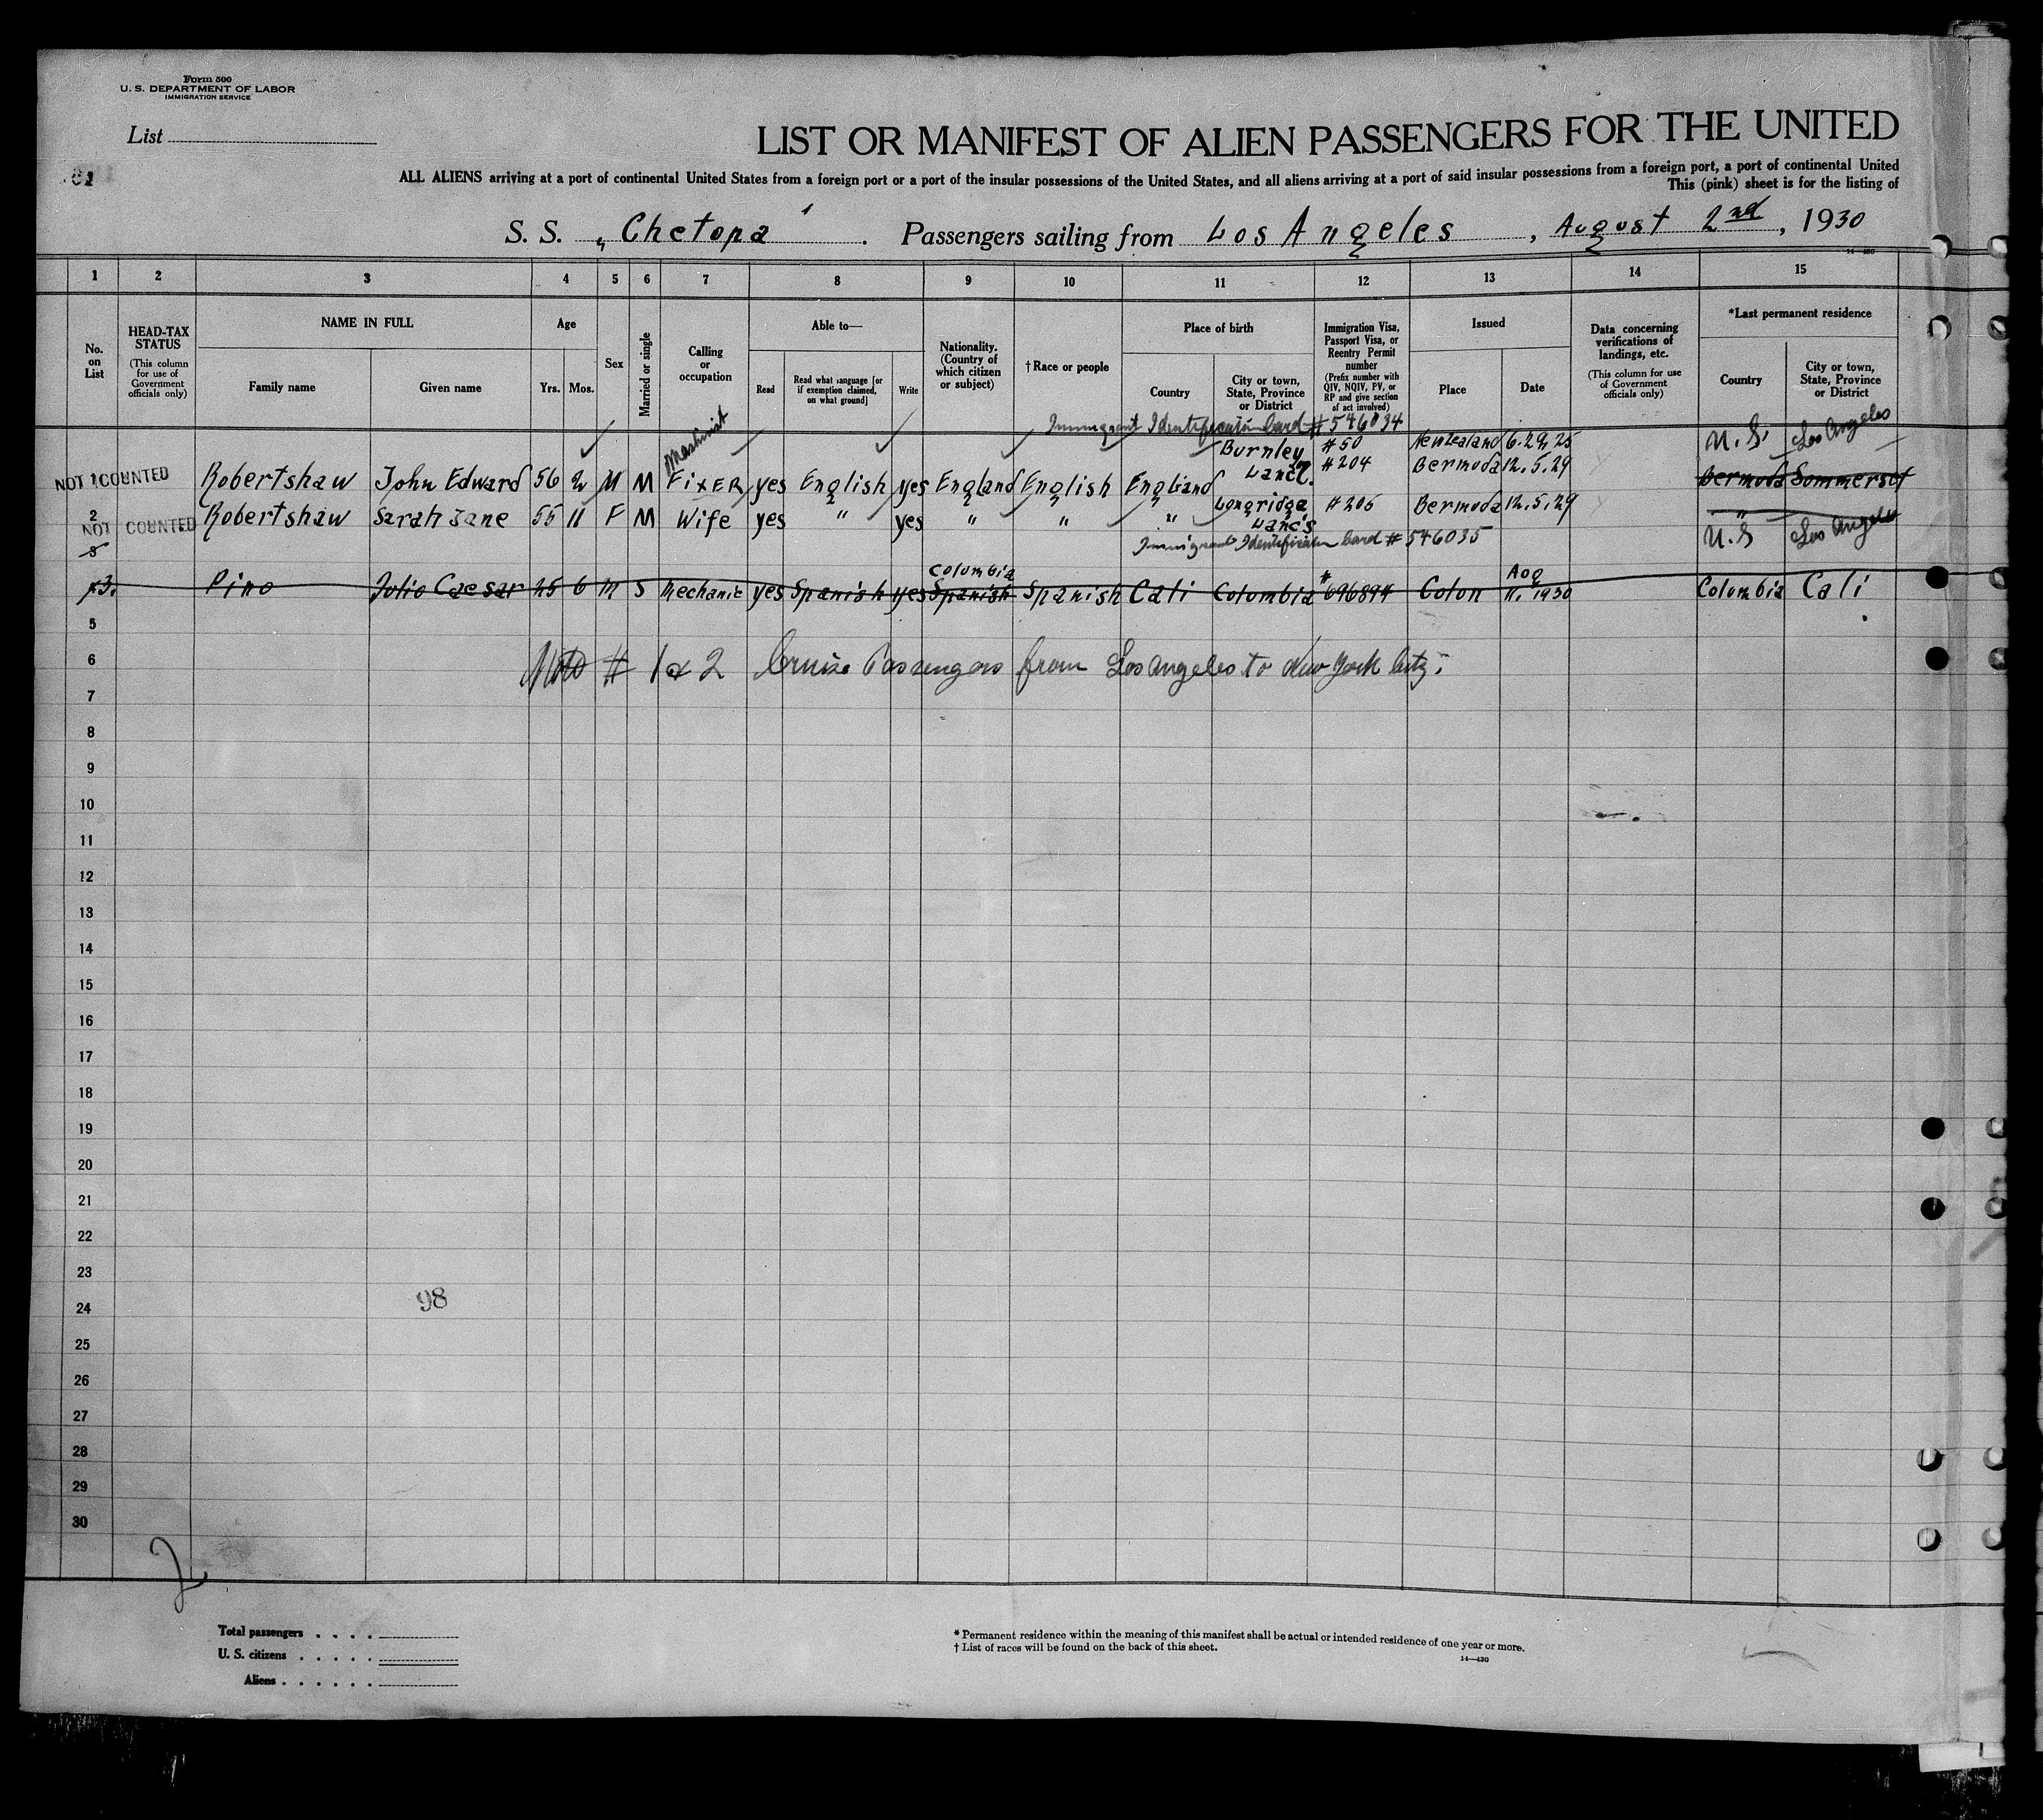 Form 500
U. S. DEPARTMENT OF LABOR
IMMIGRATION SERVICE
List
LIST OR MANIFEST OF ALIEN PASSENGERS FOR THE UNITED
ALL ALIENS arriving at a port of continental United States from a foreign port or a port of the insular possessions of the United States, and all aliens arriving at a port of said insular possessions from a foreign port, a port of continental United
This (pink) sheet is for the listing of
S. S. „ Chetopa ' . Passengers sailing from Los Angeles , August 2nd , 1930
1 2 3 4 5 6 7 8 9 10 11 12 13 14 15
No. on List
HEAD-TAX STATUS
(This column for use of Government officials only)
NAME IN FULL
Family name Given name
Age
Yrs. Mos.
Sex
Married or single
Calling or occupation
Able to—
Read
Read what language [or if exemption claimed, on what ground]
Write
Nationality. (Country of which citizen or subject)
† Race or people
Place of birth
Country
City or town, State, Province or District
Immigration Visa, Passport Visa, or Reentry Permit number
(Prefix number with QIV, NQIV, PV, or RP and give section of act involved)
Issued
Place Date
Data concerning verifications of landings, etc.
(This column for use of Government officials only)
*Last permanent residence
Country
City or town, State, Province or District
Immigrant Identification Card # 546034
Machinist Burnley #50 New Zealand 6.29.25 U.S. Los Angeles
NOT 1 COUNTED Robertshaw John Edward 56 2 M M FIXER yes English yes England English England Lanc. #204 Bermuda 12.5.29 Bermuda Sommerset
2 NOT COUNTED Robertshaw Sarah Jane 55 11 F M Wife yes " yes " " " Longridge Lanc's #205 Bermuda 12.5.29 "
3 Immigrant Identification Card # 546035 U.S Los Angeles
3. Pino Julio Caesar 25 6 M S Mechanic yes Spanish yes Columbia Spanish Spanish Cali Columbia # 696894 Colon Aog 11. 1930 Columbia Cali
5
6 Note # 1 & 2 Cruise Passengers from Los Angeles to New York City.
7
8
9
10
11
12
13
14
15
16
17
18
19
20
21
22
23
24
98
25
26
27
28
29
30
2
Total passengers . . . .
U. S. citizens . . . . .
Aliens . . . . . .
* Permanent residence within the meaning of this manifest shall be actual or intended residence of one year or more.
† List of races will be found on the back of this sheet.
14—430